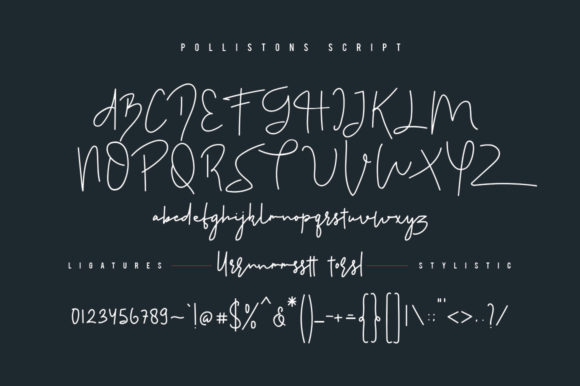 POLLISTONS SCRIPT
ABCDEFGHIJKLM
NOPQRSTUVWXYZ
abcdefghijklmnopqrstuvwxyz
LIGATURES STYLISTIC
0123456789~`!@#$%^&*()_-+={}[]|\:;"'<>,.?/